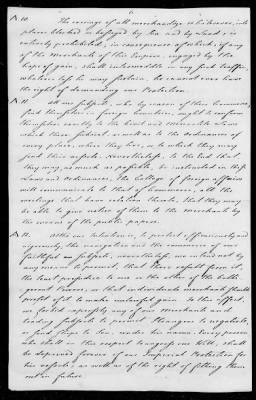 No 10. The carriage of all merchandize is likewise, into
places blocked or besieged by Sea and by Land, is
entirely prohibited; in consequence of which, if any
of the Merchants of this Empire, engaged by the
hope of gain, shall intermeddle in any such traffic,
whatever loss he may sustain, he cannot ever have
the right of demanding our Protection.
No 11. All our subjects, who by reason of their Commerce,
find themselves in foreign Countries, ought to conform
themselves exactly to the Laws and
which there subsist, as well as to the Ordinances of
every place, where they live, or to which they may
send their vessels. Nevertheless, to the End that
they may, as much as possible, be instructed in these
Laws and Ordinances, the College of foreign affairs
will communicate to that of Commerce, all the
writings that have relation thereto, that they may
be able to give notice of them to the Merchants by
the means of the public papers.
No 12. Altho our Intention is, to protect efficaciously and
vigorously, the navigation and the commerce of our
faithful Subjects, nevertheless, we intend not by
any means to permit, that there result from it,
the least prejudice to one or the other of the belli-
gerent Powers, or that individuals should
profit of it to make unlawful gain. To this effect,
we forbid expressly, any of our Merchants and
trading Subjects to permit Strangers to negotiate,
or send Ships to Sea, under his name. Every person
who shall in this respect transgress our Will, shall
be deprived forever of our Imperial Protection for
his vessels, as well as of the right of fitting them
out in future.